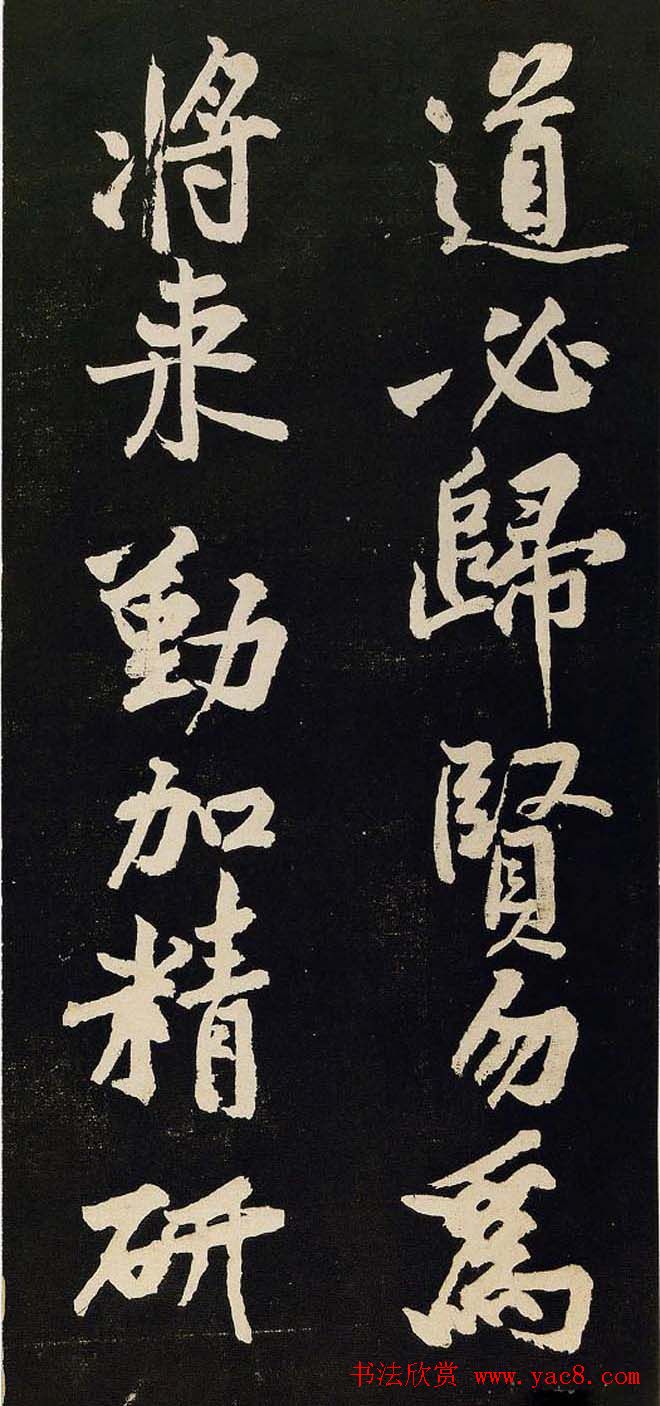 道必歸賢勿爲
將来勤加精研
书法欣赏 www.yac8.com